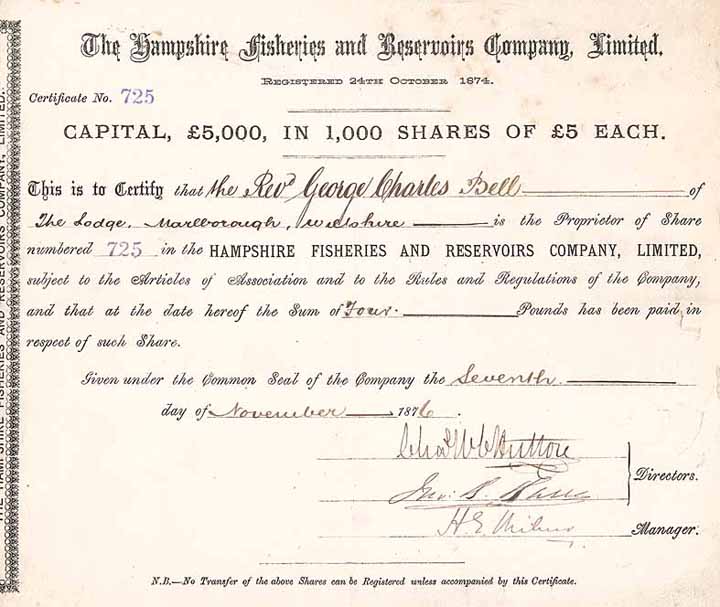 The Hampshire Fisheries and Reservoirs Company, Limited.
Registered 24th October 1874.
Certificate No. 725
CAPITAL, £5,000, IN 1,000 SHARES OF £5 EACH.
This is to Certify that the Revd George Charles Bell of
The Lodge, Marlborough, Wiltshire is the Proprietor of Share
numbered 725 in the HAMPSHIRE FISHERIES AND RESERVOIRS COMPANY, LIMITED,
subject to the Articles of Association and to the Rules and Regulations of the Company,
and that at the date hereof the Sum of Four. Pounds has been paid in
respect of such Share.
Given under the Common Seal of the Company the Seventh
day of November 1876.
Chas W C Hutton
Directors.
H. E.
Manager.
N.B.—No Transfer of the above Shares can be Registered unless accompanied by this Certificate.
THE HAMPSHIRE FISHERIES AND RESERVOIRS COMPANY, LIMITED.